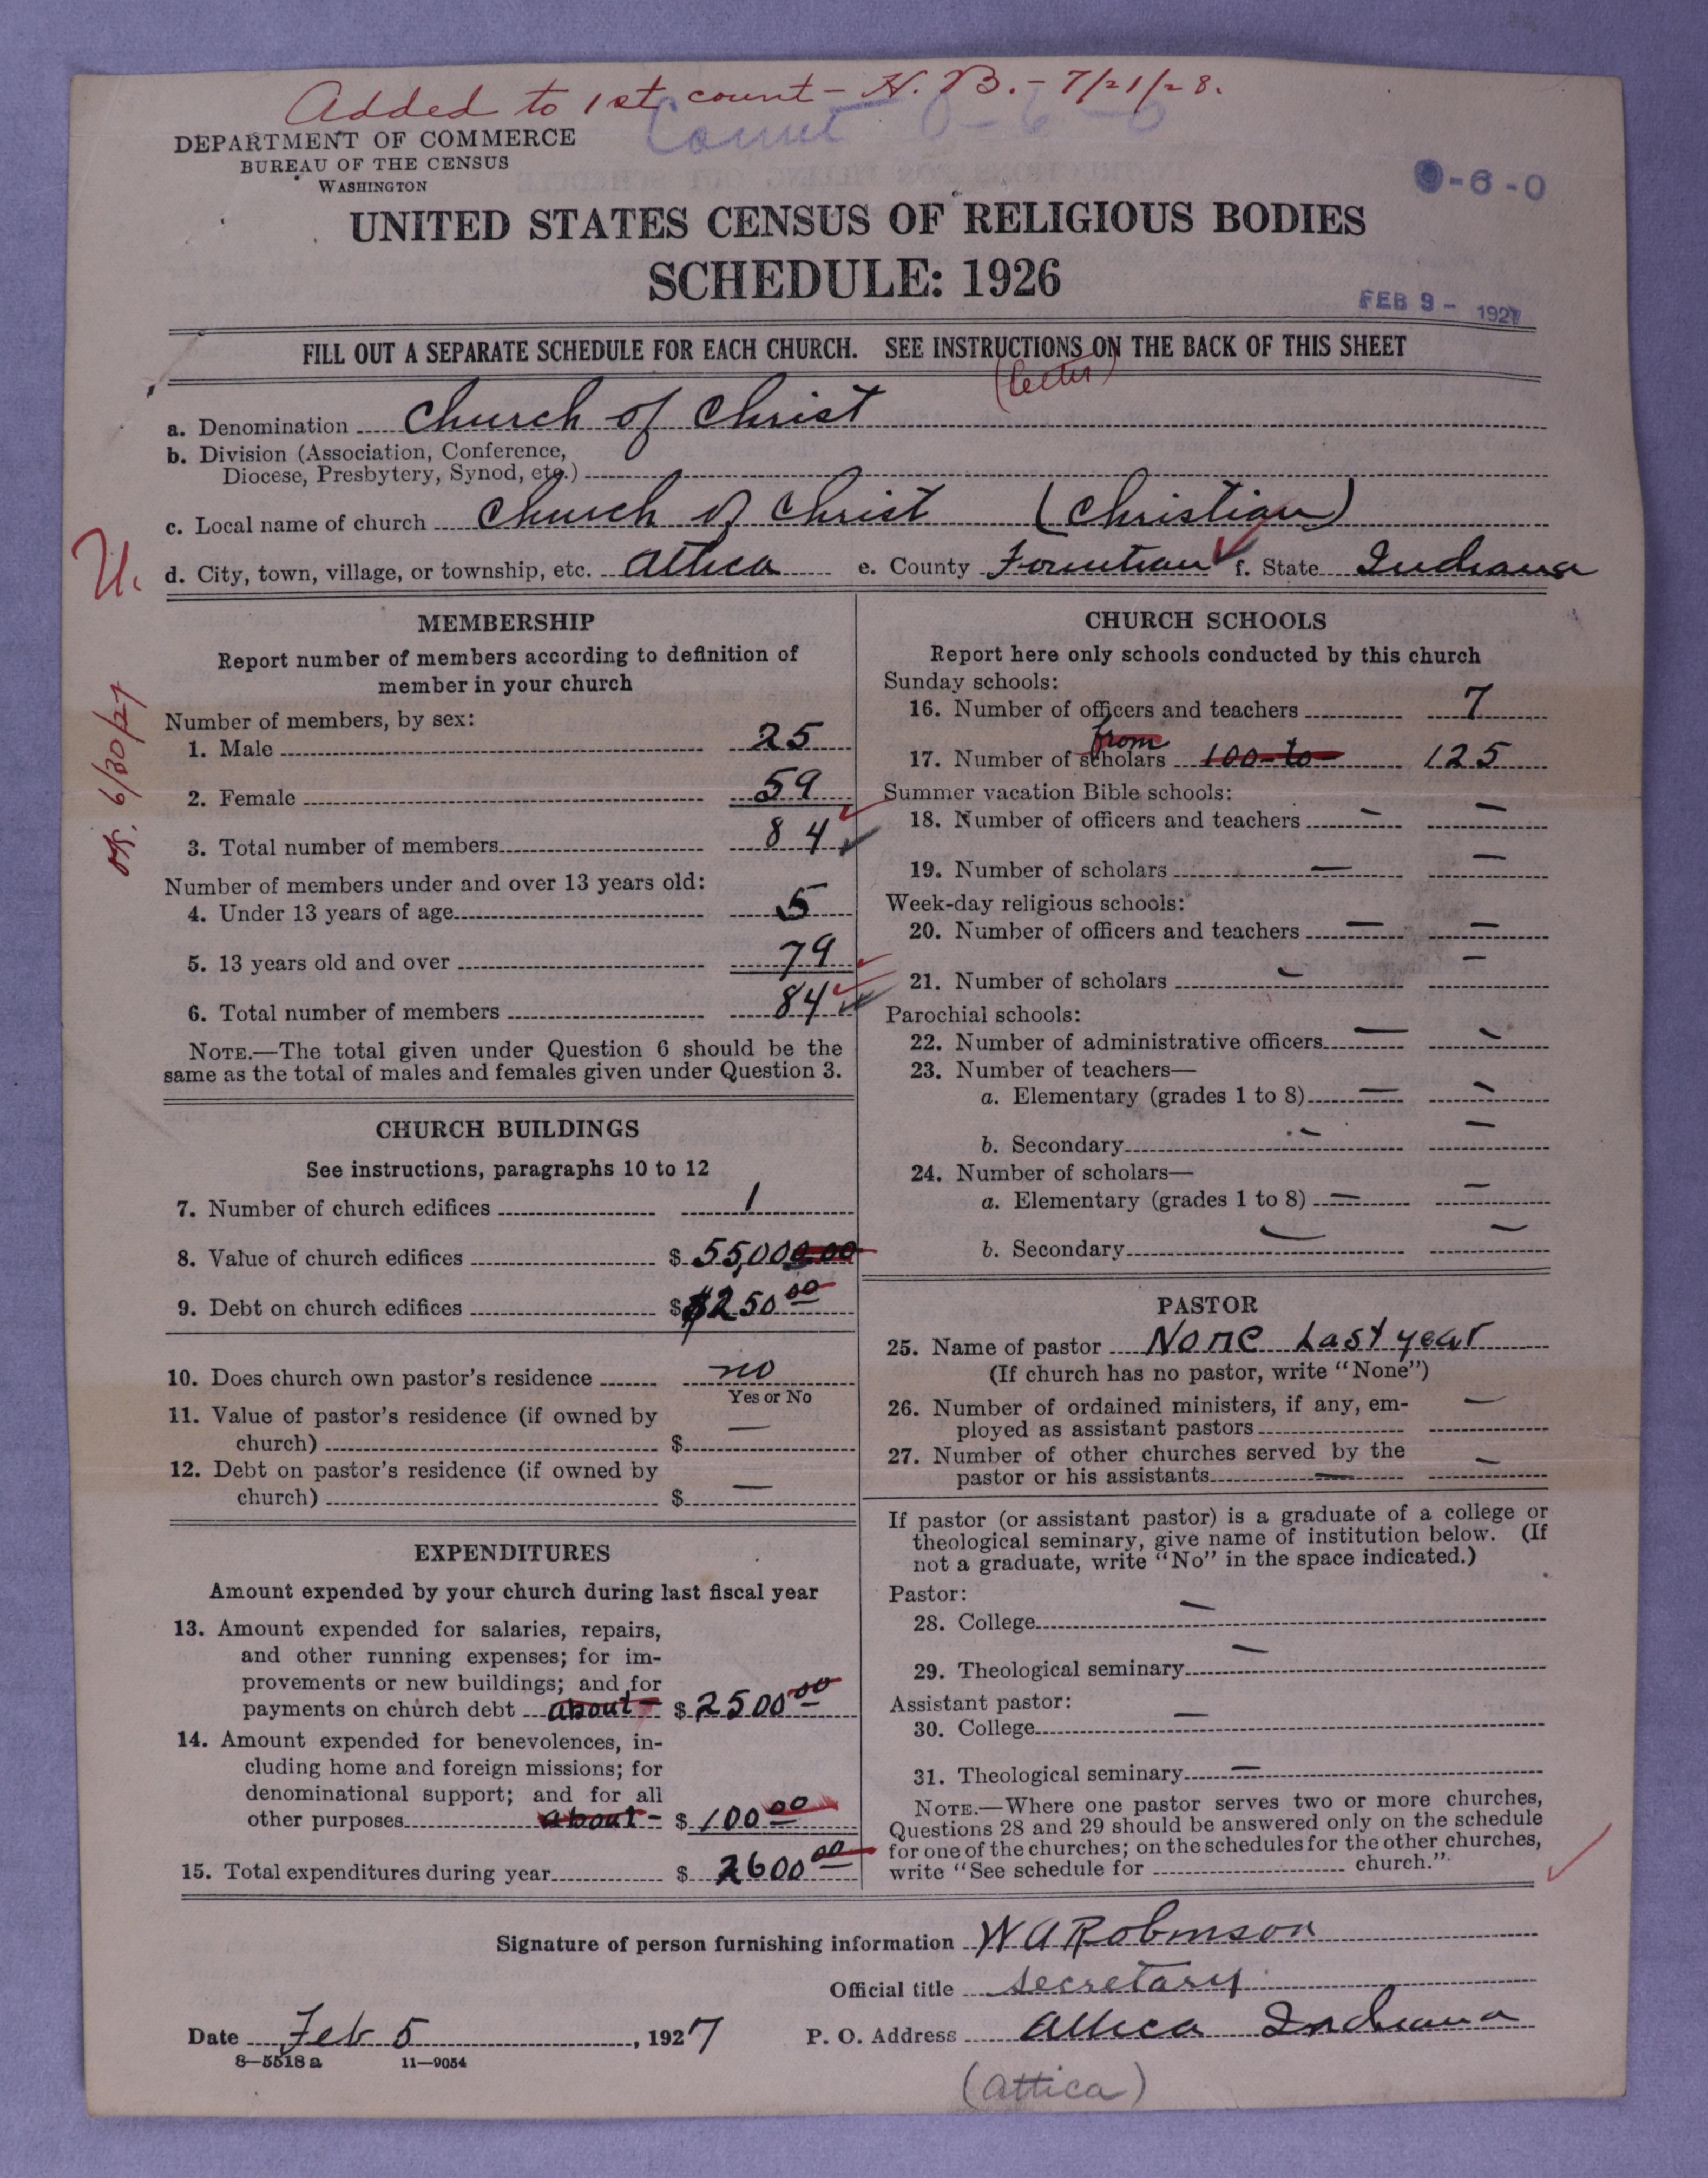 Added to 1st count - H. B. - 7/21/28.
Count 0-6-0
DEPARTMENT OF COMMERCE
BUREAU OF THE CENSUS
WASHINGTON
-6-0
UNITED STATES CENSUS OF RELIGIOUS BODIES
SCHEDULE: 1926
FEB 9 - 1927
FILL OUT A SEPARATE SCHEDULE FOR EACH CHURCH. SEE INSTRUCTIONS ON THE BACK OF THIS SHEET
(letter)
a. Denomination Church of Christ
b. Division (Association, Conference,
Diocese, Presbytery, Synod, etc.)
c. Local name of church Church of Christ (Christian)
d. City, town, village, or township, etc. Attica e. County Fountian f. State Indiana
U.
6/30/27
MEMBERSHIP
Report number of members according to definition of
member in your church
Number of members, by sex:
1. Male 25
2. Female 59
3. Total number of members 84
Number of members under and over 13 years old:
4. Under 13 years of age 5
5. 13 years old and over 79
6. Total number of members 84
NOTE.—The total given under Question 6 should be the
same as the total of males and females given under Question 3.
CHURCH BUILDINGS
See instructions, paragraphs 10 to 12
7. Number of church edifices 1
8. Value of church edifices $ 55,000.00
9. Debt on church edifices $ $250 00
10. Does church own pastor's residence no
Yes or No
11. Value of pastor's residence (if owned by
church) $ —
12. Debt on pastor's residence (if owned by
church) $ —
EXPENDITURES
Amount expended by your church during last fiscal year
13. Amount expended for salaries, repairs,
and other running expenses; for im-
provements or new buildings; and for
payments on church debt about - $ 2500 00
14. Amount expended for benevolences, in-
cluding home and foreign missions; for
denominational support; and for all
other purposes about - $ 100 00
15. Total expenditures during year $ 2600 00
CHURCH SCHOOLS
Report here only schools conducted by this church
Sunday schools:
16. Number of officers and teachers 7
from
17. Number of scholars 100 to 125
Summer vacation Bible schools:
18. Number of officers and teachers — —
19. Number of scholars — —
Week-day religious schools:
20. Number of officers and teachers — —
21. Number of scholars — —
Parochial schools:
22. Number of administrative officers — —
23. Number of teachers—
a. Elementary (grades 1 to 8) — —
b. Secondary — —
24. Number of scholars—
a. Elementary (grades 1 to 8) — —
b. Secondary — —
PASTOR
25. Name of pastor None Last year
(If church has no pastor, write "None")
26. Number of ordained ministers, if any, em-
ployed as assistant pastors —
27. Number of other churches served by the
pastor or his assistants — —
If pastor (or assistant pastor) is a graduate of a college or
theological seminary, give name of institution below. (If
not a graduate, write "No" in the space indicated.)
Pastor:
28. College —
29. Theological seminary —
Assistant pastor:
30. College —
31. Theological seminary —
NOTE.—Where one pastor serves two or more churches,
Questions 28 and 29 should be answered only on the schedule
for one of the churches; on the schedules for the other churches,
write "See schedule for church."
Signature of person furnishing information W A Robinson
Official title secretary
Date Feb 5, 1927 P. O. Address Attica Indiana
8—5518 a 11—9054
(Attica)